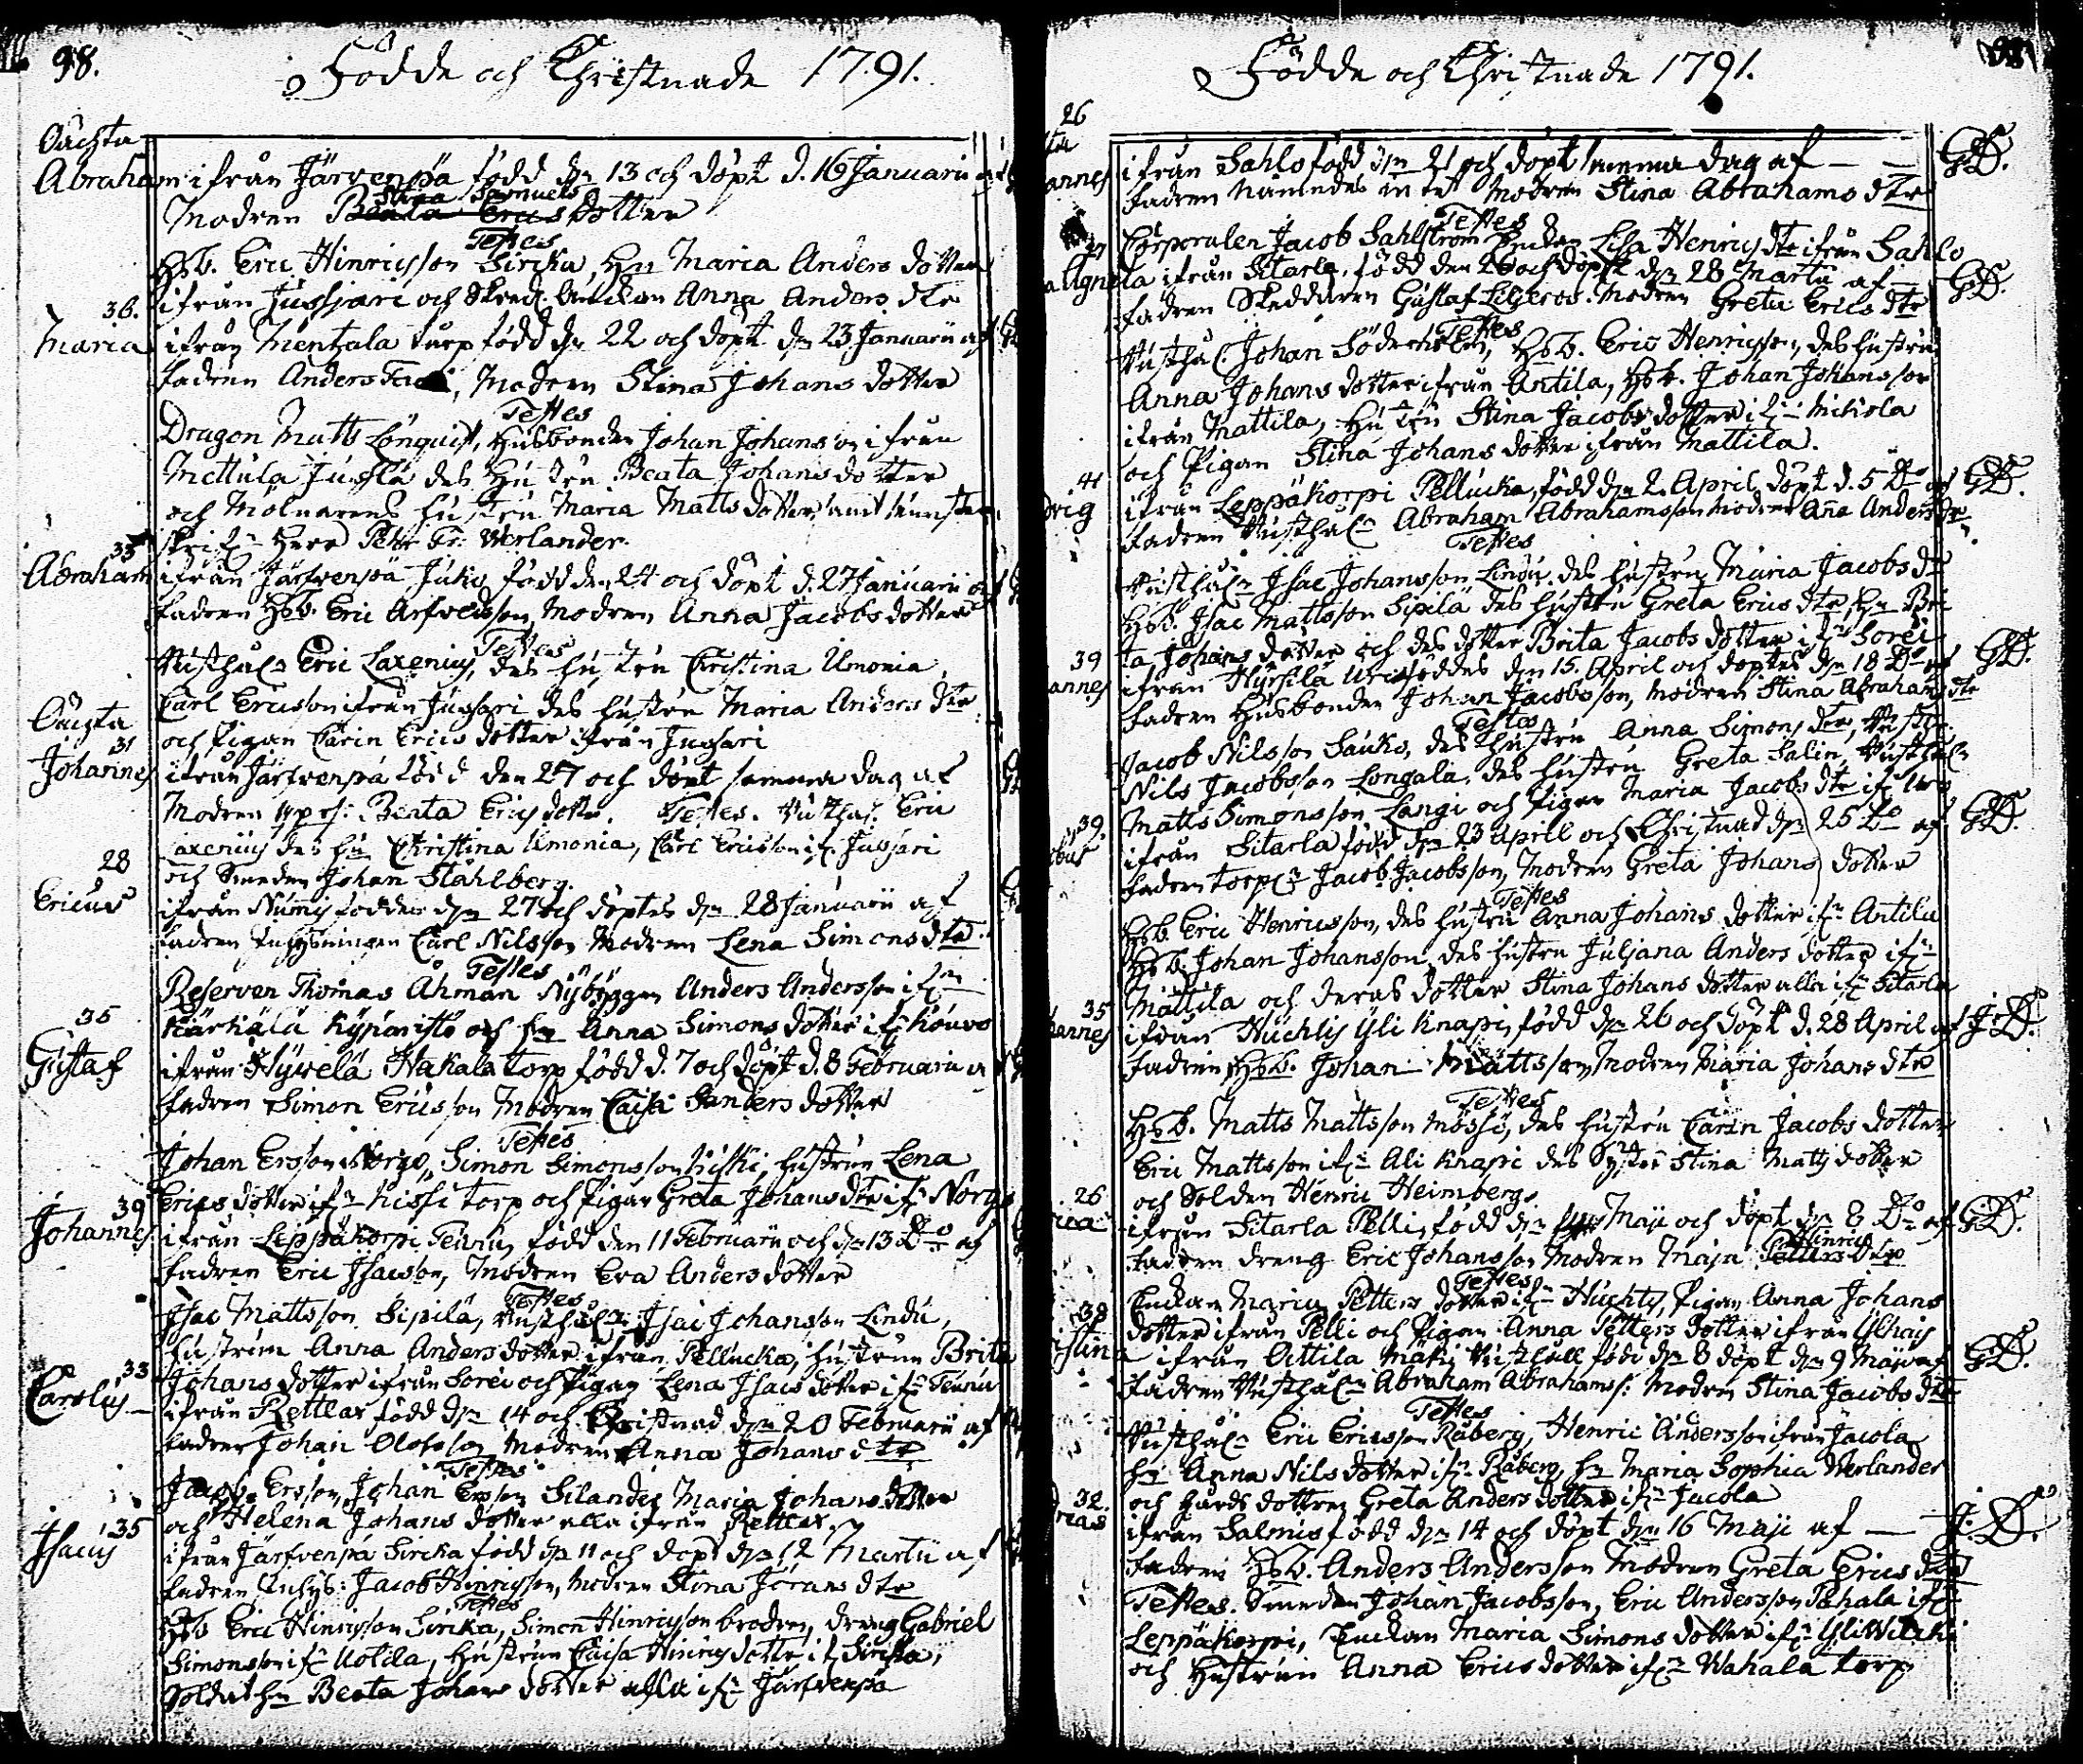 98.
Födde och Christnade 1791.
Oächta
Abraham ifrån Järvenpä född dn 13 och döpt d. 16 Januarii af
Stina Samuels
Modren Beata Erics dotter
Testes
Hsb. Eric Hinricsson Sircka, Hu Maria Anders dotter
ifrån Jussjari och Skred. Enckan Anna Anders dtr
36.
Maria ifrån Mentzala torp född dn 22 och döpt dn 23 Januarii af
fadren Anders, Modren Stina Johans dotter
Testes
Dragon Matts Lönquist, Husbonden Johan Johansson ifrån
Mettula Jussila des Hustru Beata Johans dotter
och Mölnarens hustru Maria Matts dotter, samt
Herr Petter Fr: Werlander.
33
Abraham ifrån Järfvenpä Juko född den 24 och döpt d. 27 Januarii af
fadren Hsb. Eric Arfvedsson, Modren Anna Jacobs dotter
Testes
Rusthål. Eric Laxenius, des hustru Christina Umonia,
Carl Ericsson ifrån Jussari des hustru Maria Anders dtr
och Pigan Carin Erics dotter ifrån Jussari
Oächta
31
Johannes ifrån Järfvenpä född den 27 och döpt samma dag af
Modren Beata Erics dotter. Testes. Rusthål. Eric
Laxenius des hu Christina Umonia, Carl Ericsson if. Jussari
och Smeden Johan Stahlberg.
28
Ericus ifrån Nummis föddes dn 27 och döptes dn 28 Januarii af
fadren Inhysingen Carl Nilsson Modren Lena Simons dtr.
Testes
Reserven Thomas Åhman Nybyggen Anders Andersson ifn
Kärkälä och hu Anna Simons dotter ifn Kouvo
35
Gustaf ifrån Hyvelä Hakala torp född d. 7 och döpt d. 8 Februarii af
fadren Simon Ericsson Modren Caisa Sanders dotter
Testes
Johan Ersson Norgo, Simon Simonsson, hustrun Lena
Erics dotter ifn Kissi torp och Pigan Greta Johans dtr ifn Norgo
39
Johannes ifrån Leppäkorpi född den 11 Februarii och dn 13 Do af
fadren Eric Isacsson, Modren Eva Anders dotter
Testes
Isac Mattsson Sipilä, Rusthåln. Isac Johansson Lindu,
hustrun Anna Anders dotter ifrån Pellucka, hustrun Brita
Johans dotter ifrån Sorei och Pigan Lena Isacs dotter ifn
33
Carolus ifrån Rettlax född dn 14 och Christnad dn 20 Februarii af
fadren Johan Olofsson Modren Anna Johans dtr
Testes
Jacob Ersson, Johan Ersson Silander Maria Johans dotter
och Helena Johans dotter alla ifrån Rettlax.
35
Isacus ifrån Järfvenpä Sircka född dn 11 och döpt dn 12 Martii af
fadren Inhys: Jacob Hinricsson, Modren Stina Jörans dtr
Testes
Hsb Eric Hinricsson Sircka, Simon Hinricsson brodren, dreng Gabriel
Simonsson ifn Uotila, hustrun Caisa Hinrics dotter if. Sircka,
Soldat hu Beata Johans dotter alla ifn Järfvenpä
Födde och Christnade 1791.
26
annes ifrån Sahlo född dn 21 och döpt samma dag af — GD.
fadren namndes intet Modren Stina Abrahams dtr
Testes
Corporalen Jacob Sahlström Enckan Lisa Henrics dtr ifrån Sahlo
a Agneta ifrån Sitarla, född den 26 och döpt dn 28 Martii af GD.
fadren Skeddaren Gustaf Liljeroos. Modren Greta Erics dtr
Testes
Rusthål. Johan Söderholm, Hsb. Eric Henricsson, des hustru
Anna Johans dotter ifrån Antila, Hsb. Johan Johansson
ifrån Mattila, Hustru Stina Jacobs dotter ifn Mikola
och Pigan Stina Johans dotter ifrån Mattila.
41
dvig ifrån Leppäkorpi Pellucka, född dn 2. April, döpt d. 5 Do af GD.
fadren Rusthåln Abraham Abrahamsson Modren Anna Anders dtr
Testes
Rusthåln Isac Johansson Lindu. des hustru Maria Jacobs dr
Hsb. Isac Mattsson Sipilä des hustru Greta Erics dtr, Hu Bri
ta Johans dotter och des dotter Brita Jacobs dotter ifn Sorei
39
annes ifrån Hyrsilä föddes dn 15. April och döptes dn 18 Do af GD.
fadren Husbonden Johan Jacobsson, Modren Stina Abrahams dtr
Testes
Jacob Nilsson Sauko, des hustru Anna Simons dtr, Rusth.
Nils Jacobsson Longala, des hustru Greta Salin, Rusthåln
Matts Simonsson Langi och Pigan Maria Jacobs dtr
39.
ifrån Sitarla född dn 23 April och Christnad dn 25 Do af GD.
fadren torpn Jacob Jacobsson, Modren Greta Johans dotter
Testes
Hsb. Eric Henricsson, des hustru Anna Johans dotter ifn Antila
Hsb. Johan Johansson, des hustru Juljana Anders dotter ifn
Mattila och deras dotter Stina Johans dotter alla ifn Sitarla
35
annes ifrån Huchtis Yli Knapi, född dn 26 och döpt d. 28 April af J.D.
fadren Hsb. Johan Mattsson, Modren Maria Johans dtr
Testes
Hsb. Matts Mattsson Mössi, des hustru Carin Jacobs dotter
Eric Mattsson ifn Ali Knapi des Syster Stina Matts dotter
och Solden Henric Heimberg.
26
rica ifrån Sitarla Pelli, född dn Maji och döpt dn 8 Do af GD.
Hinrics
fadren dreng Eric Johansson Modren Maja Petters dtr
Testes
Enckan Maria Petters dotter ifn Huchtis, Pigan Anna Johans
dotter ifrån Pelli och Pigan Anna Petters dotter ifrån
38
istina ifrån Attila Mäki Rusthåll född dn 8 döpt dn 9 Maji af GD.
fadren Rusthåln Abraham Abrahamss: Modren Stina Jacobs dtr
Testes
Rusthåln Eric Ericsson Råberg, Henric Andersson ifrån Jacola
hu Anna Nils dotter ifn Råberg, hu Maria Sophia Werlander
och Gårds dottren Greta Anders dotter ifn Jacola
32.
reas ifrån Salmis född dn 14 och döpt dn 16 Maji af — J.D.
fadren Hsb. Anders Andersson Modren Greta Erics dtr
Testes. Smeden Johan Jacobsson, Eric Andersson Pahala ifn
Leppäkorpi, Enckan Maria Simons dotter ifn Yli
och Hustrun Anna Erics dotter ifn Wahala torp